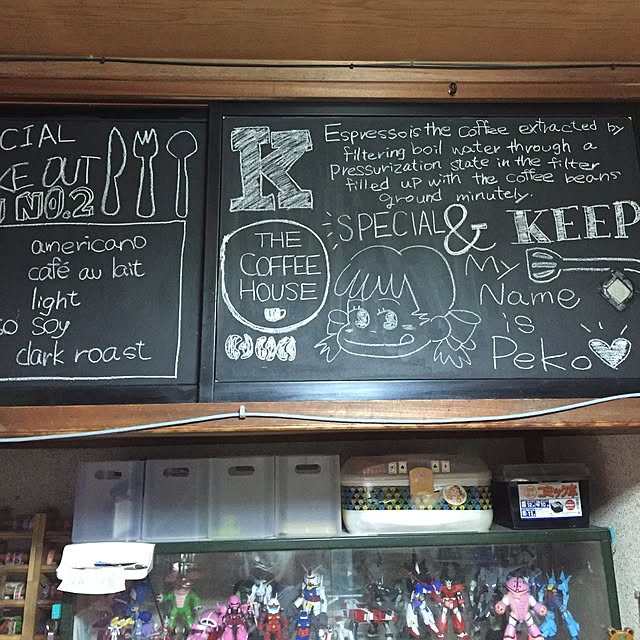 CIAL
KE OUT
NO.2
americano
café au lait
light
so soy
dark roast
K
Espresso is the coffee extracted by
filtering boil water through a
Pressurization state in the filter
filled up with the coffee beans
ground minutely.
SPECIAL & KEEP
THE
COFFEE
HOUSE
My
Name
is
Peko
コミック本